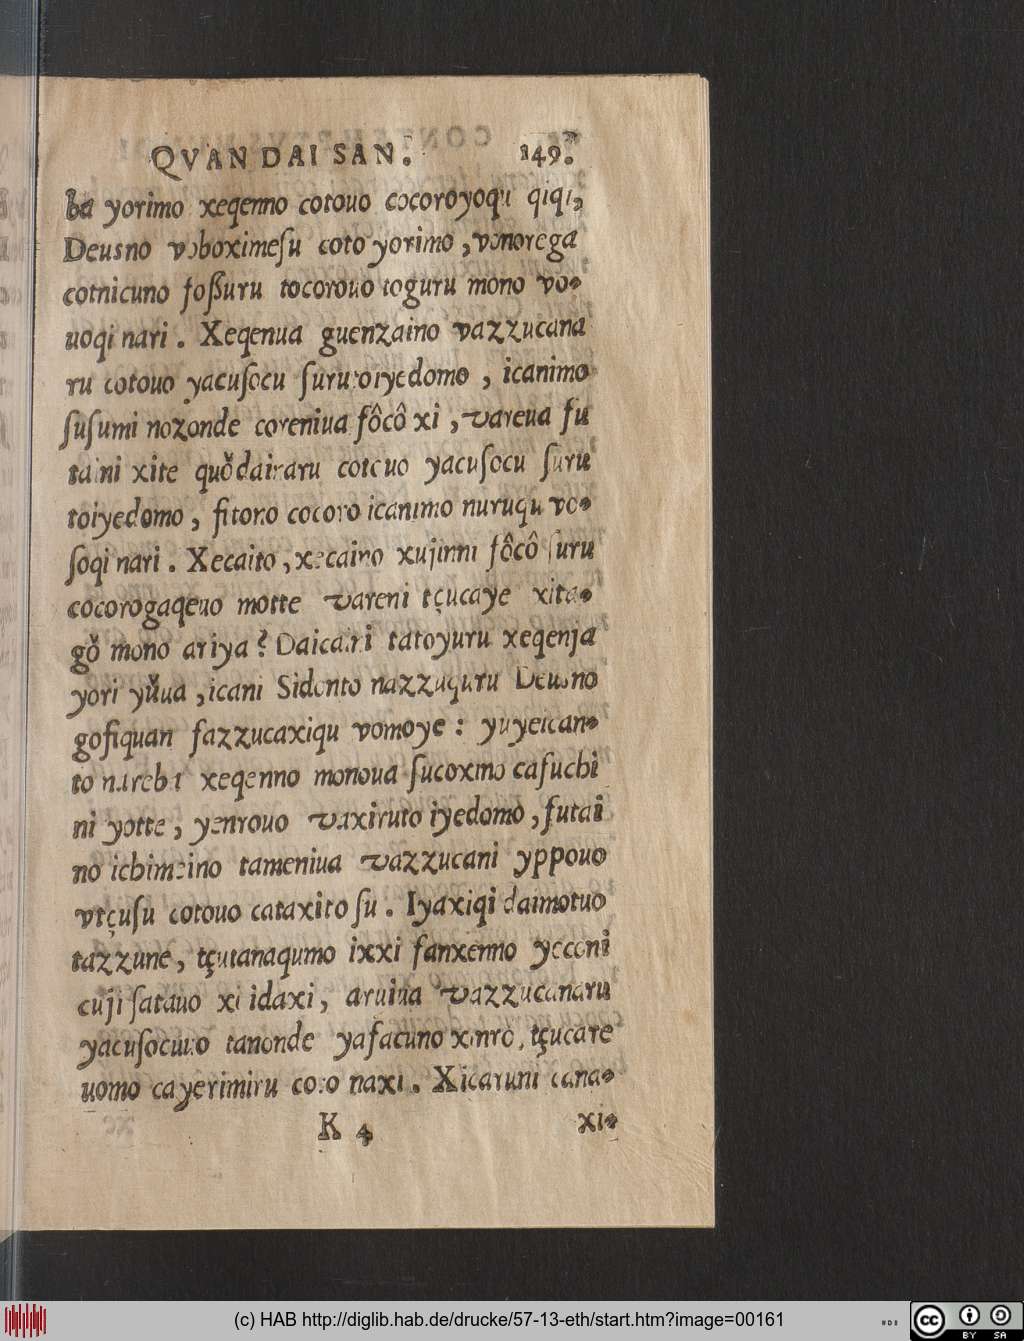 QVAN DAI SAN. 149.
ba yorimo xeqenno cotouo cocoroyoqu qiqi,
Deusno voboximeſu coto yorimo, vonorega
cotnicuno foſſuru tocorouo toguru mono vo-
uoqi nari. Xeqenua guenzaino vazzucana
ru cotouo yacuſocu ſuru toiyedomo, icanimo
ſuſumi nozonde coreniua fôcô xi, vareua fu
taini xite quǒdainaru cotouo yacuſocu ſuru
toiyedomo, fitono cocoro icanimo nuruqu vo-
ſoqi nari. Xecaito, xecaino xujinni fôcô ſuru
cocorogaqeuo motte vareni tçucaye xita-
gǒ mono ariya? Daicairi tatoyuru xeqenja
yori yǔua, icani Sidonto nazzuquru Deusno
gofiquan fazzucaxiqu vomoye: yuyeican-
to nareba xeqenno monoua ſucoxino cafuchi
ni yotte, yenrouo vaxiruto iyedomo, futai
no ichimeino tameniua vazzucani yppouo
vtçuſu cotouo cataxito ſu. Iyaxiqi daimotuo
tazzune, tçutanaqumo ixxi fanxenno yeconi
cuji ſatauo xi idaxi, aruiua vazzucanaru
yacuſocuno tanonde yafacuno xinrô, tçucare
uomo cayerimiru coto naxi. Xicaruni cana-
K 4 xi-
(c) HAB http://diglib.hab.de/drucke/57-13-eth/start.htm?image=00161
cc BY SA